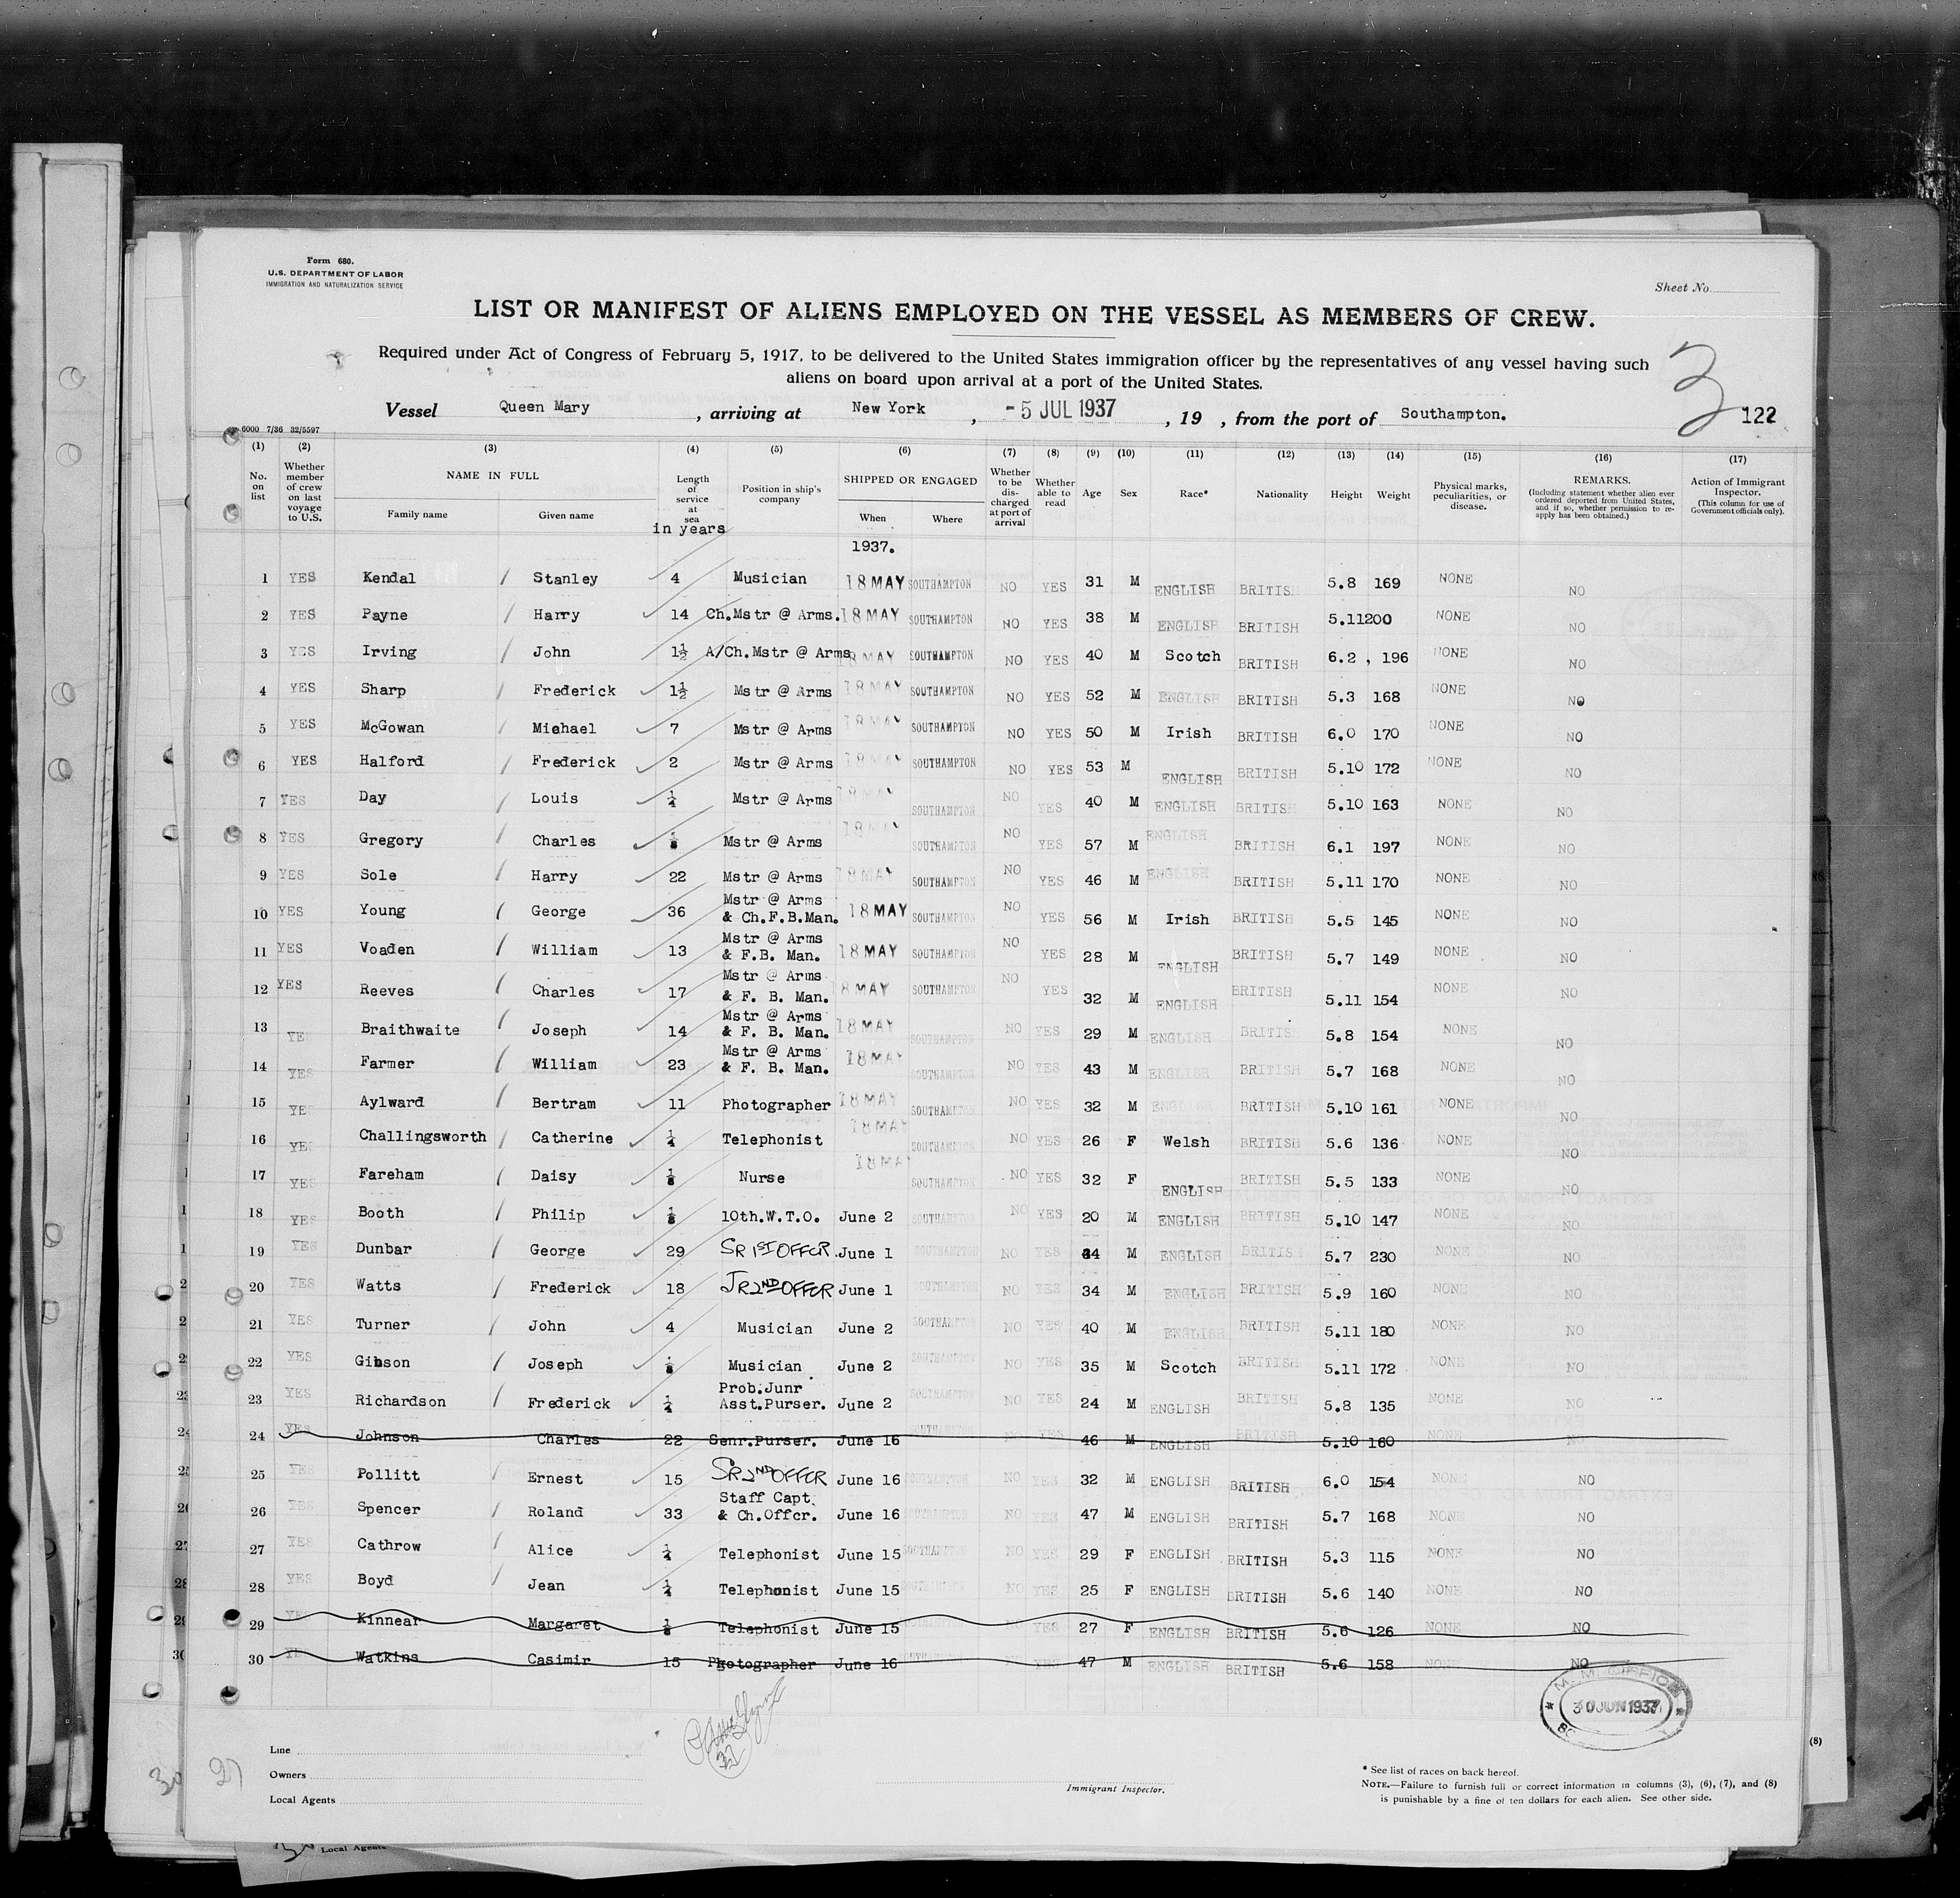 Form 680.
U.S. DEPARTMENT OF LABOR
IMMIGRATION AND NATURALIZATION SERVICE
Sheet No.
LIST OR MANIFEST OF ALIENS EMPLOYED ON THE VESSEL AS MEMBERS OF CREW.
Required under Act of Congress of February 5, 1917, to be delivered to the United States immigration officer by the representatives of any vessel having such
aliens on board upon arrival at a port of the United States.
3
Vessel Queen Mary , arriving at New York , -5 JUL 1937 , 19 , from the port of Southampton. 122
6000 7/36 32/5597
(1) (2) (3) (4) (5) (6) (7) (8) (9) (10) (11) (12) (13) (14) (15) (16) (17)
No. on list
Whether member of crew on last voyage to U.S.
NAME IN FULL
Family name Given name
Length of service at sea
in years
Position in ship's company
SHIPPED OR ENGAGED
When Where
Whether to be discharged at port of arrival
Whether able to read
Age Sex Race* Nationality Height Weight
Physical marks, peculiarities, or disease.
REMARKS.
(Including statement whether alien ever ordered deported from United States, and if so, whether permission to re-apply has been obtained.)
Action of Immigrant Inspector.
(This column for use of Government officials only).
1937.
1 YES Kendal Stanley 4 Musician 18 MAY SOUTHAMPTON NO YES 31 M ENGLISH BRITISH 5.8 169 NONE NO
2 YES Payne Harry 14 Ch.Mstr @ Arms. 18 MAY SOUTHAMPTON NO YES 38 M ENGLISH BRITISH 5.11 200 NONE NO
3 YES Irving John 1½ A/Ch.Mstr @ Arms 18 MAY SOUTHAMPTON NO YES 40 M Scotch BRITISH 6.2 , 196 NONE NO
4 YES Sharp Frederick 1½ Mstr @ Arms 18 MAY SOUTHAMPTON NO YES 52 M ENGLISH BRITISH 5.3 168 NONE NO
5 YES McGowan Michael 7 Mstr @ Arms 18 MAY SOUTHAMPTON NO YES 50 M Irish BRITISH 6.0 170 NONE NO
6 YES Halford Frederick 2 Mstr @ Arms 18 MAY SOUTHAMPTON NO YES 53 M ENGLISH BRITISH 5.10 172 NONE NO
7 YES Day Louis ¼ Mstr @ Arms 18 MAY SOUTHAMPTON NO YES 40 M ENGLISH BRITISH 5.10 163 NONE NO
8 YES Gregory Charles ⅛ Mstr @ Arms 18 MAY SOUTHAMPTON NO YES 57 M ENGLISH BRITISH 6.1 197 NONE NO
9 YES Sole Harry 22 Mstr @ Arms 18 MAY SOUTHAMPTON NO YES 46 M ENGLISH BRITISH 5.11 170 NONE NO
10 YES Young George 36 Mstr @ Arms & Ch.F.B.Man. 18 MAY SOUTHAMPTON NO YES 56 M Irish BRITISH 5.5 145 NONE NO
11 YES Voaden William 13 Mstr @ Arms & F.B. Man. 18 MAY SOUTHAMPTON NO YES 28 M ENGLISH BRITISH 5.7 149 NONE NO
12 YES Reeves Charles 17 Mstr @ Arms & F. B. Man. 18 MAY SOUTHAMPTON NO YES 32 M ENGLISH BRITISH 5.11 154 NONE NO
13 YES Braithwaite Joseph 14 Mstr @ Arms & F. B. Man. 18 MAY SOUTHAMPTON NO YES 29 M ENGLISH BRITISH 5.8 154 NONE NO
14 YES Farmer William 23 Mstr @ Arms & F. B. Man. 18 MAY SOUTHAMPTON NO YES 43 M ENGLISH BRITISH 5.7 168 NONE NO
15 YES Aylward Bertram 11 Photographer 18 MAY SOUTHAMPTON NO YES 32 M ENGLISH BRITISH 5.10 161 NONE NO
16 YES Challingsworth Catherine ¼ Telephonist 18 MAY SOUTHAMPTON NO YES 26 F Welsh BRITISH 5.6 136 NONE NO
17 YES Fareham Daisy ⅛ Nurse 18 MAY SOUTHAMPTON NO YES 32 F ENGLISH BRITISH 5.5 133 NONE NO
18 YES Booth Philip ⅛ 10th.W.T.O. June 2 SOUTHAMPTON NO YES 20 M ENGLISH BRITISH 5.10 147 NONE NO
19 YES Dunbar George 29 SR 1ST OFFCR. June 1 SOUTHAMPTON NO YES 44 M ENGLISH BRITISH 5.7 230 NONE NO
20 YES Watts Frederick 18 JR 2ND OFFCR June 1 SOUTHAMPTON NO YES 34 M ENGLISH BRITISH 5.9 160 NONE NO
21 YES Turner John 4 Musician June 2 SOUTHAMPTON NO YES 40 M ENGLISH BRITISH 5.11 180 NONE NO
22 YES Gibson Joseph ⅛ Musician June 2 SOUTHAMPTON NO YES 35 M Scotch BRITISH 5.11 172 NONE NO
23 YES Richardson Frederick ¼ Prob.Junr Asst.Purser. June 2 SOUTHAMPTON NO YES 24 M ENGLISH BRITISH 5.8 135 NONE NO
24 YES Johnson Charles 22 Senr.Purser. June 16 SOUTHAMPTON NO YES 46 M ENGLISH BRITISH 5.10 160 NONE NO
25 YES Pollitt Ernest 15 SR 2ND OFFCR June 16 SOUTHAMPTON NO YES 32 M ENGLISH BRITISH 6.0 154 NONE NO
26 YES Spencer Roland 33 Staff Capt. & Ch.Offcr. June 16 SOUTHAMPTON NO YES 47 M ENGLISH BRITISH 5.7 168 NONE NO
27 YES Cathrow Alice ¼ Telephonist June 15 SOUTHAMPTON NO YES 29 F ENGLISH BRITISH 5.3 115 NONE NO
28 YES Boyd Jean ¼ Telephonist June 15 SOUTHAMPTON NO YES 25 F ENGLISH BRITISH 5.6 140 NONE NO
29 YES Kinnear Margaret ⅛ Telephonist June 15 SOUTHAMPTON NO YES 27 F ENGLISH BRITISH 5.6 126 NONE NO
30 YE Watkins Casimir 15 Photographer June 16 SOUTHAMPTON NO YES 47 M ENGLISH BRITISH 5.6 158 NONE NO
30 JUN 1937
Line
Owners
Local Agents
Immigrant Inspector.
* See list of races on back hereof.
NOTE.—Failure to furnish full or correct information in columns (3), (6), (7), and (8)
is punishable by a fine of ten dollars for each alien. See other side.
(8)
30 27
Local Agents